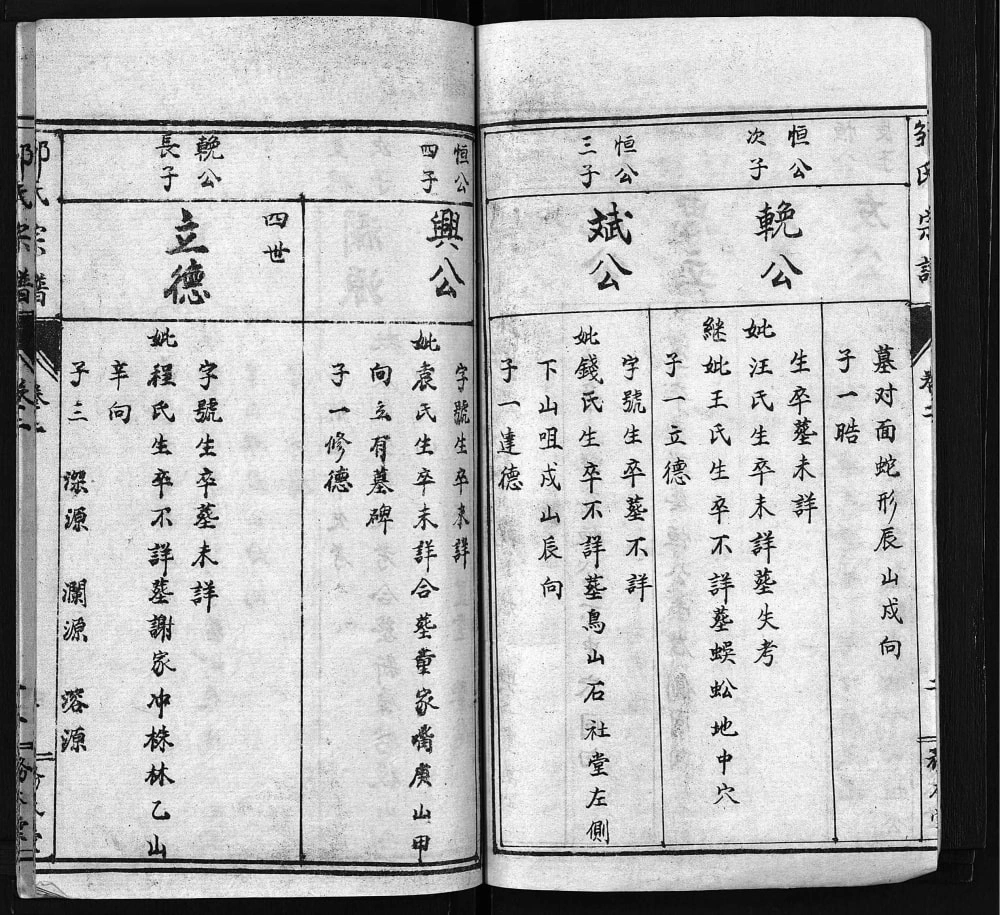 鄒氏宗譜
卷二
二
墓对面蛇形辰山戍向
子一晧
恒公
次子
輓公
生卒墓未詳
妣汪氏生卒未詳墓失考
継妣王氏生卒不詳墓蜈蚣地中穴
子一立德
恒公
三子
斌公
字號生卒墓不詳
妣錢氏生卒不詳墓鳥山石社堂左側
下山咀戍山辰向
子一達德
恒公
四子
興公
字號生卒未詳
妣袁氏生卒未詳合墓董家嘴庚山甲
向立有墓碑
子一修德
四世
輓公
長子
立德
字號生卒墓未詳
妣程氏生卒不詳墓謝家冲株林乙山
辛向
子三 深源 瀾源 溶源
氏宗譜
卷二